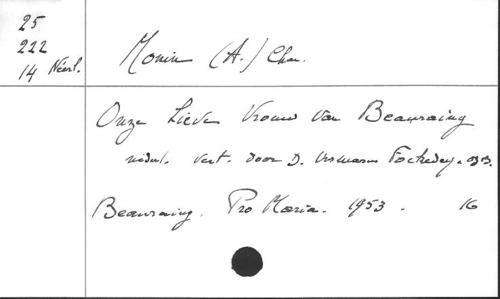 25
222
14 Néerl.
Monin (A.) Chan.
Onze Lieve Vrouw van Beauraing
nederl. vert. door D.
Beauraing. Pro Maria. 1953. 16